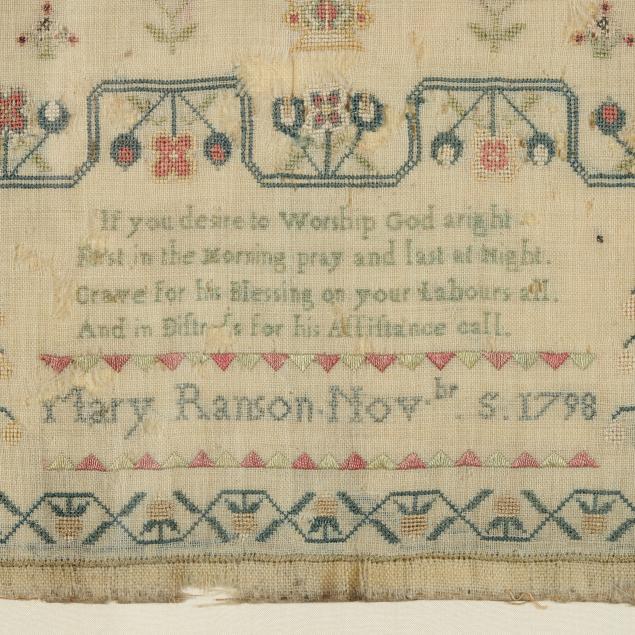 If you desire to Worship God aright
First in the Morning pray and last at Night.
Crave for his Blessing on your Labours all.
And in Distreſs for his Aſſiſtance call.
Mary Ranson. Nov.br. 8. 1798